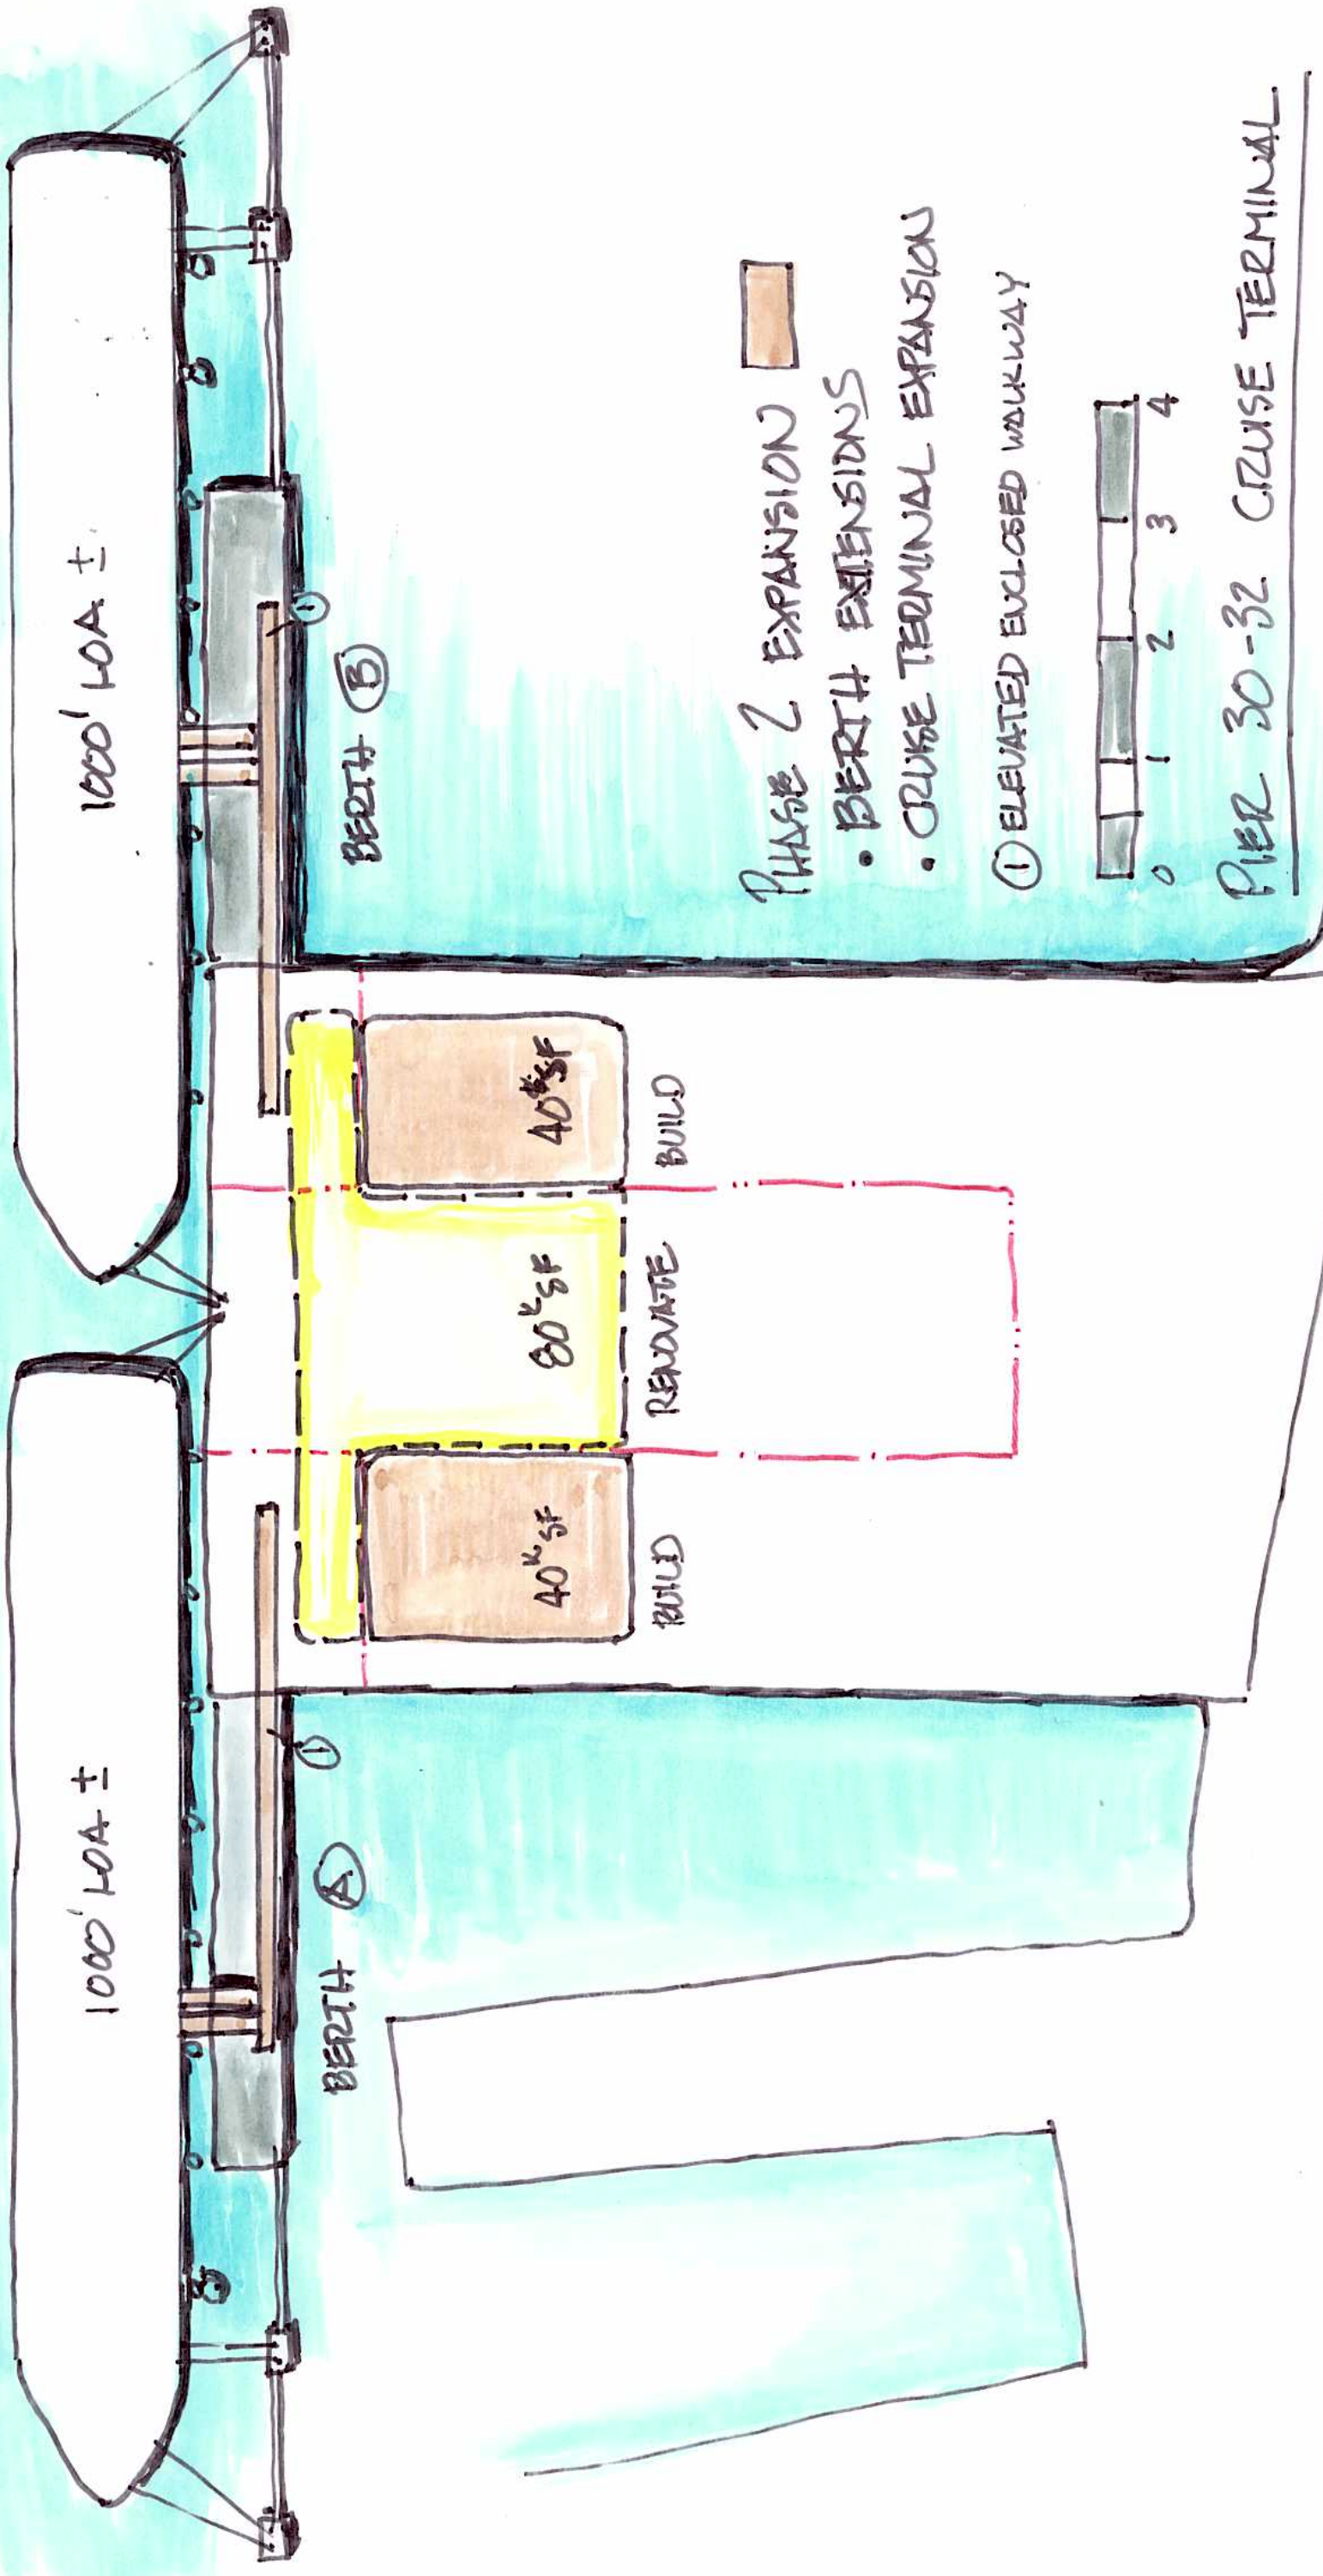 1000' LOA ±
1000' LOA ±
BERTH A
1
BERTH B
1
40K SF
80K SF
40K SF
BUILD
RENOVATE
BUILD
PHASE 2 EXPANSION
• BERTH EXTENSIONS
• CRUISE TERMINAL EXPANSION
1 ELEVATED ENCLOSED WALKWAY
0 1 2 3 4
PIER 30-32 CRUISE TERMINAL